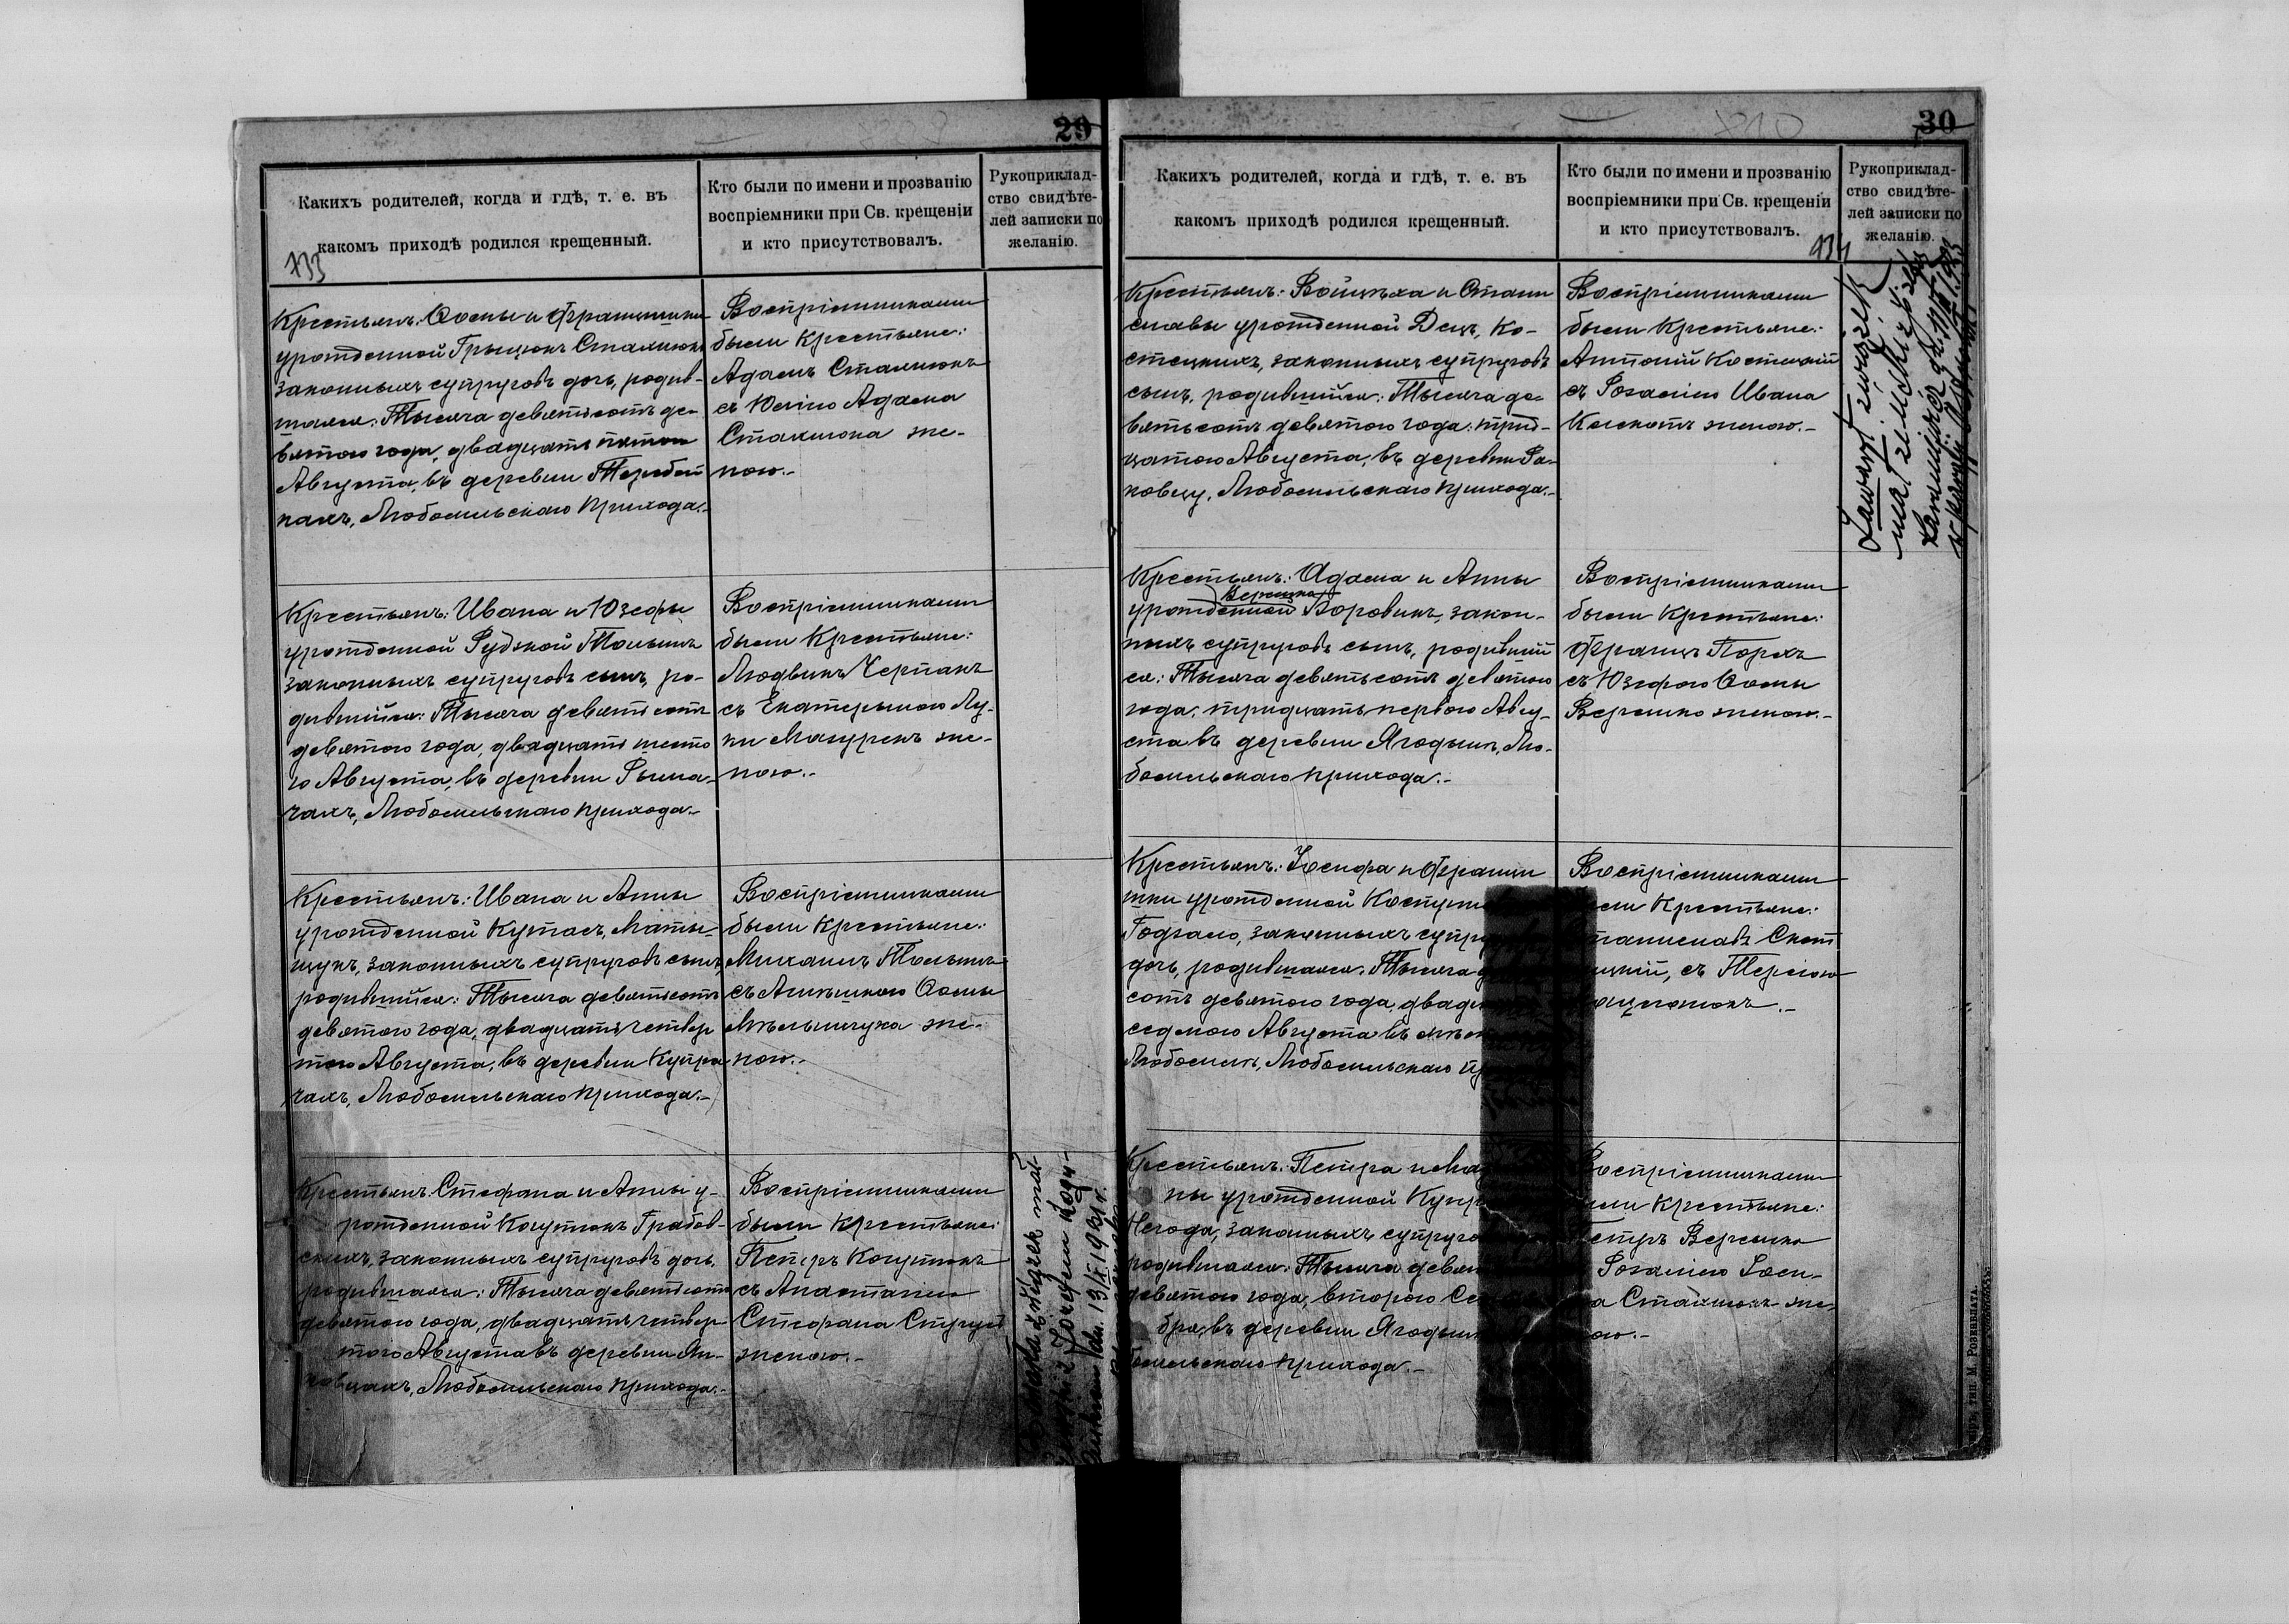 29
Каких родителей, когда и гдѣ, т. е. въ
какомъ приходѣ родился крещенный.
Кто были по имени и прозванію
воспріемники при Св. крещеніи
и кто присутствовалъ.
Рукоприклад-
ство свидѣте-
лей записки по
желанію.
133
Крестьянъ: Ѳомы и Францишки
урожденной Грыцюкъ Стахнюкъ
законныхъ супруговъ дочь, родив-
шаяся: Тысяча девятьсотъ де-
вятого года, двадцать пятого
Августа, въ деревни
нахъ, Любомльскаго прихода.-
Воспріемниками
были Крестьяне:
Адамъ Стахнюкъ
съ Юліею Адама
Стахнюка же-
ною.-
Крестьянъ: Ивана и Юзефы
урожденной Рудской
законныхъ супруговъ сынъ, ро-
дившійся: Тысяча девятьсотъ
девятого года, двадцать шесто
го Августа, въ деревни Рыма-
чахъ, Любомльскаго прихода.-
Воспріемниками
были Крестьяне:
Людвикъ Черпакъ
съ Екатериною Лу-
ки Мазурекъ же-
ною.-
Крестьянъ: Ивана и Анны
урожденной Маты-
щукъ, законныхъ супруговъ сынъ,
родившійся: Тысяча девятьсотъ
девятого года, двадцать четвер
того Августа, въ деревни Купра
чахъ, Любомльскаго прихода.-
Воспріемниками
были Крестьяне:
Михаилъ
съ Ѳомы
Мѣльничука же-
ною.-
Крестьянъ: Стефана и Анны у-
рожденной Когутюкъ Грабов-
скихъ, законныхъ супруговъ дочь,
родившаяся: Тысяча девятьсотъ
девятого года, двадцать четвер-
того Августа въ деревни Ян-
ковцахъ, Любомльскаго прихода.-
Воспріемниками
были Крестьяне:
Петръ Когутюкъ
съ Анастасіею
Стефана
женою.-
30
Каких родителей, когда и гдѣ, т. е. въ
какомъ приходѣ родился крещенный.
Кто были по имени и прозванію
воспріемники при Св. крещеніи
и кто присутствовалъ.
Рукоприклад-
ство свидѣте-
лей записки по
желанію.
134
Крестьянъ: Войцѣха и Стани
славы урожденной Децъ, Ко-
стецкихъ, законныхъ супруговъ
сынъ, родившійся: Тысяча де-
вятьсотъ девятого года, трид-
цатого Августа, въ деревни Ра-
ковцу, Любомльскаго прихода.-
Воспріемниками
были Крестьяне:
Антоній Костецкій
съ Розаліею Ивана
женою.-
Zawarł związek
Крестьянъ: Адама и Анны
Верешко
урожденной Боровикъ, закон-
ныхъ супруговъ сынъ, родивший
ся: Тысяча девятьсотъ девятого
года, тридцать первого Авгу-
ста въ деревни Ягодынъ, Лю-
бомльскаго прихода.-
Воспріемниками
были Крестьяне:
Францъ
съ Юзефою Ѳомы
Верешко женою.-
Крестьянъ: Іосифа и Франци
шки урожденной
законныхъ
дочь, родившаяся: Тысяча
сотъ девятого года,
седмого Августа въ
Любомлѣ, Любомльскаго
Воспріемниками
Крестьяне:
съ
Крестьянъ: Петра и
ны урожденной
законныхъ
родившаяся: Тысяча
девятого года, второго
бря, въ деревни
бомльскаго прихода.-
Воспріемниками
Крестьяне:
Верешко
Розаліею Іоси-
Стахнюкъ же-
ою.-